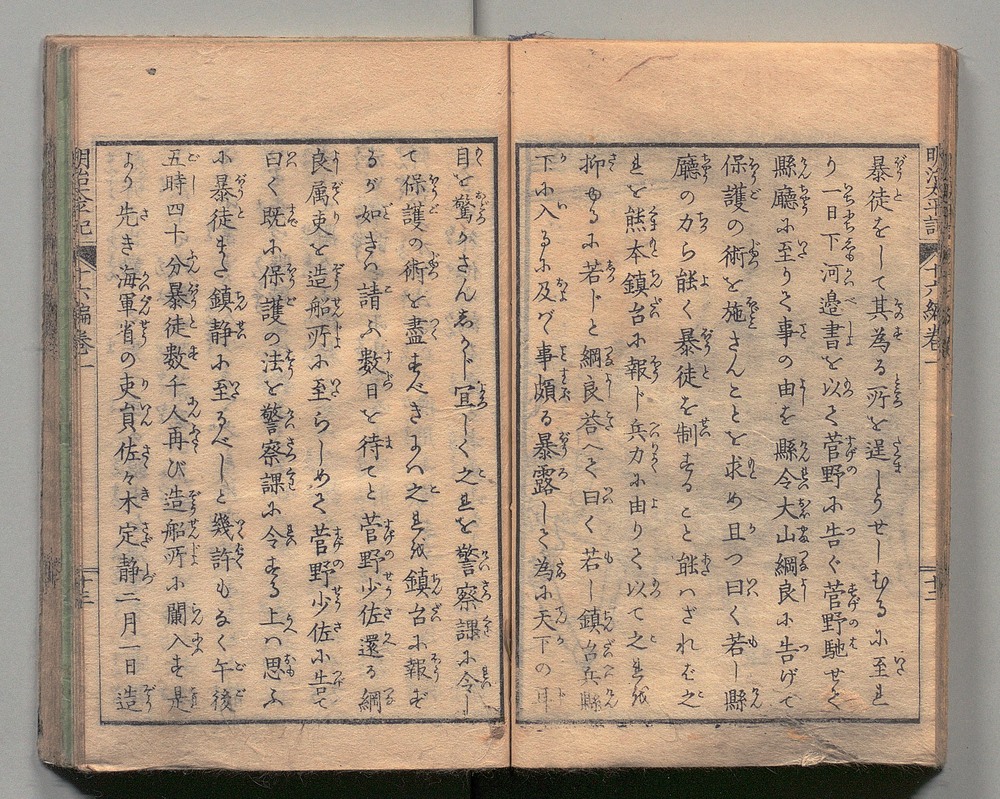 明治太平記
十六編巻一
十二
暴徒をして其為る所を逞しうせしむるに至れ
り一日下河邉書を以て菅野に告ぐ菅野馳せて
縣廳に至りて事の由を縣令大山綱良に告げて
保護の術を施さんことを求め且つ曰く若し縣
廳の力ら能く暴徒を制すること能はざれば之
れを熊本鎮台に報ド兵力に由りて以て之れを
抑ゆるに若ドと綱良荅へて曰く若し鎮台兵縣
下に入るに及バ事頗る暴露して為に天下の耳
目を驚かさんしかド宜しく之れを警察課に令し
て保護の術を盡すべきなり之れを鎮台に報ず
るが如きは請ふ数日を待てと菅野少佐還る綱
良属吏を造船所に至らしめて菅野少佐に告て
曰く既に保護の法を警察課に令する上は思ふ
に暴徒また鎮静に至るべしと幾許もなく午後
五時四十分暴徒数千人再び造船所に闌入す是
より先き海軍省の吏員佐々木定静二月一日造
明治太平記
十六編巻一
十三